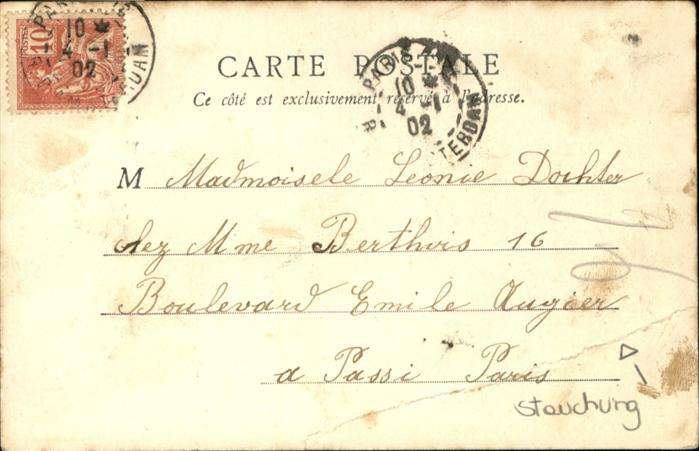 POSTES
10
PARIS
10
4 -1
02
CARTE POSTALE
Ce côté est exclusivement réservé à l'adresse.
PARIS
10
4 -1
02
M Madmoisele Leonie Dochter
chez Mme Berthvis 16
Boulevard Emile Augier
a Passi Paris
Stauchung